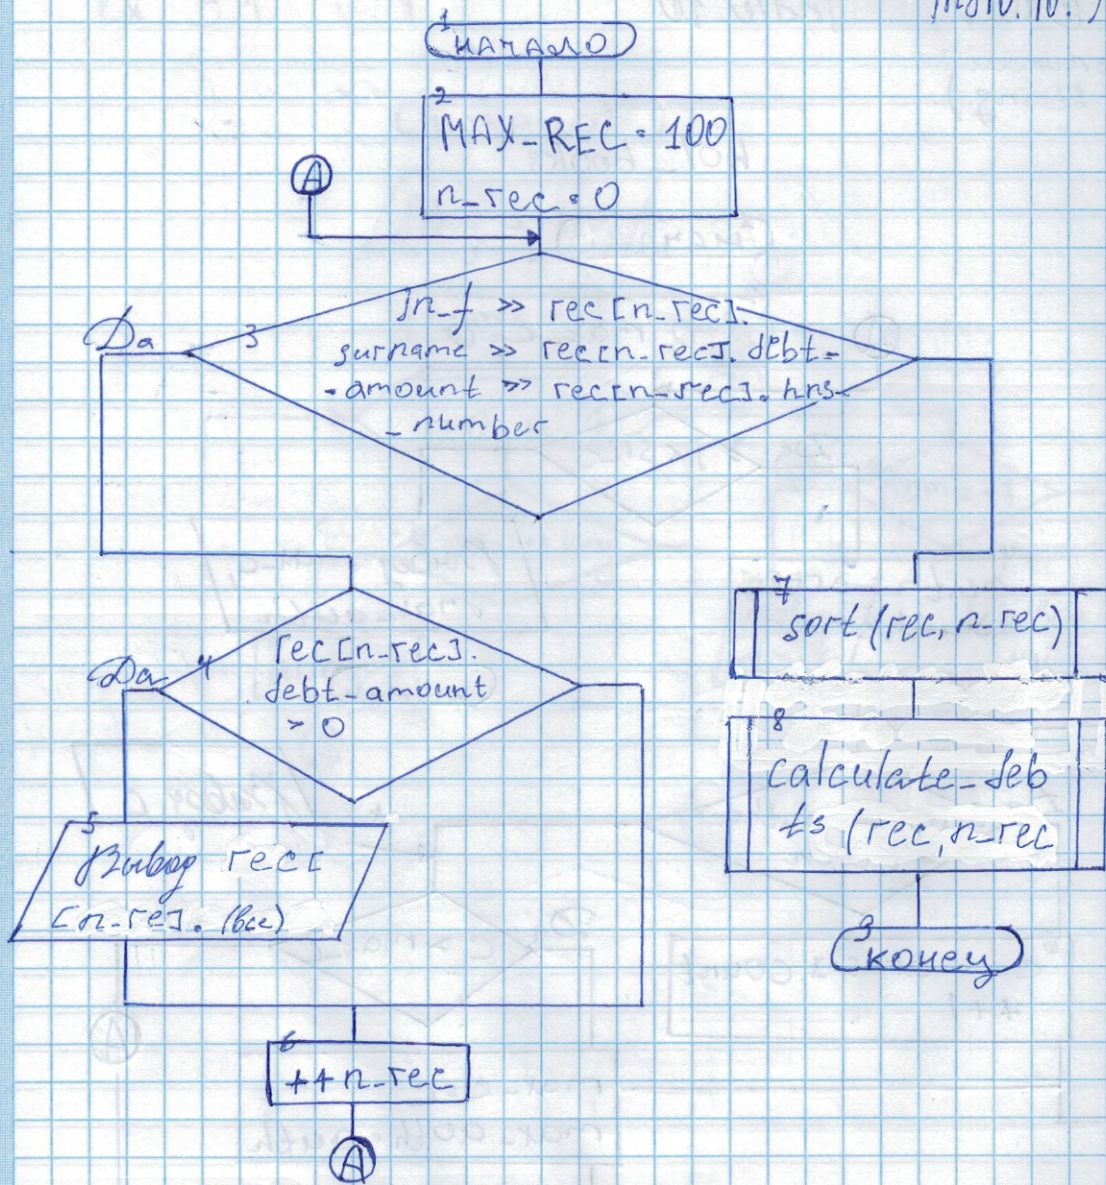 1
начало
2
MAX_REC = 100
n_rec = 0
A
3
Да
in_f >> rec[n_rec].
surname >> rec[n_rec]. debt-
-amount >> rec[n_rec]. hns-
_number
4
Да
rec[n_rec].
debt_amount
> 0
5
Вывод rec[
[n_re]. (все)
6
++n_rec
A
7
sort (rec, n_rec)
8
calculate_deb
ts (rec, n_rec
9
конец